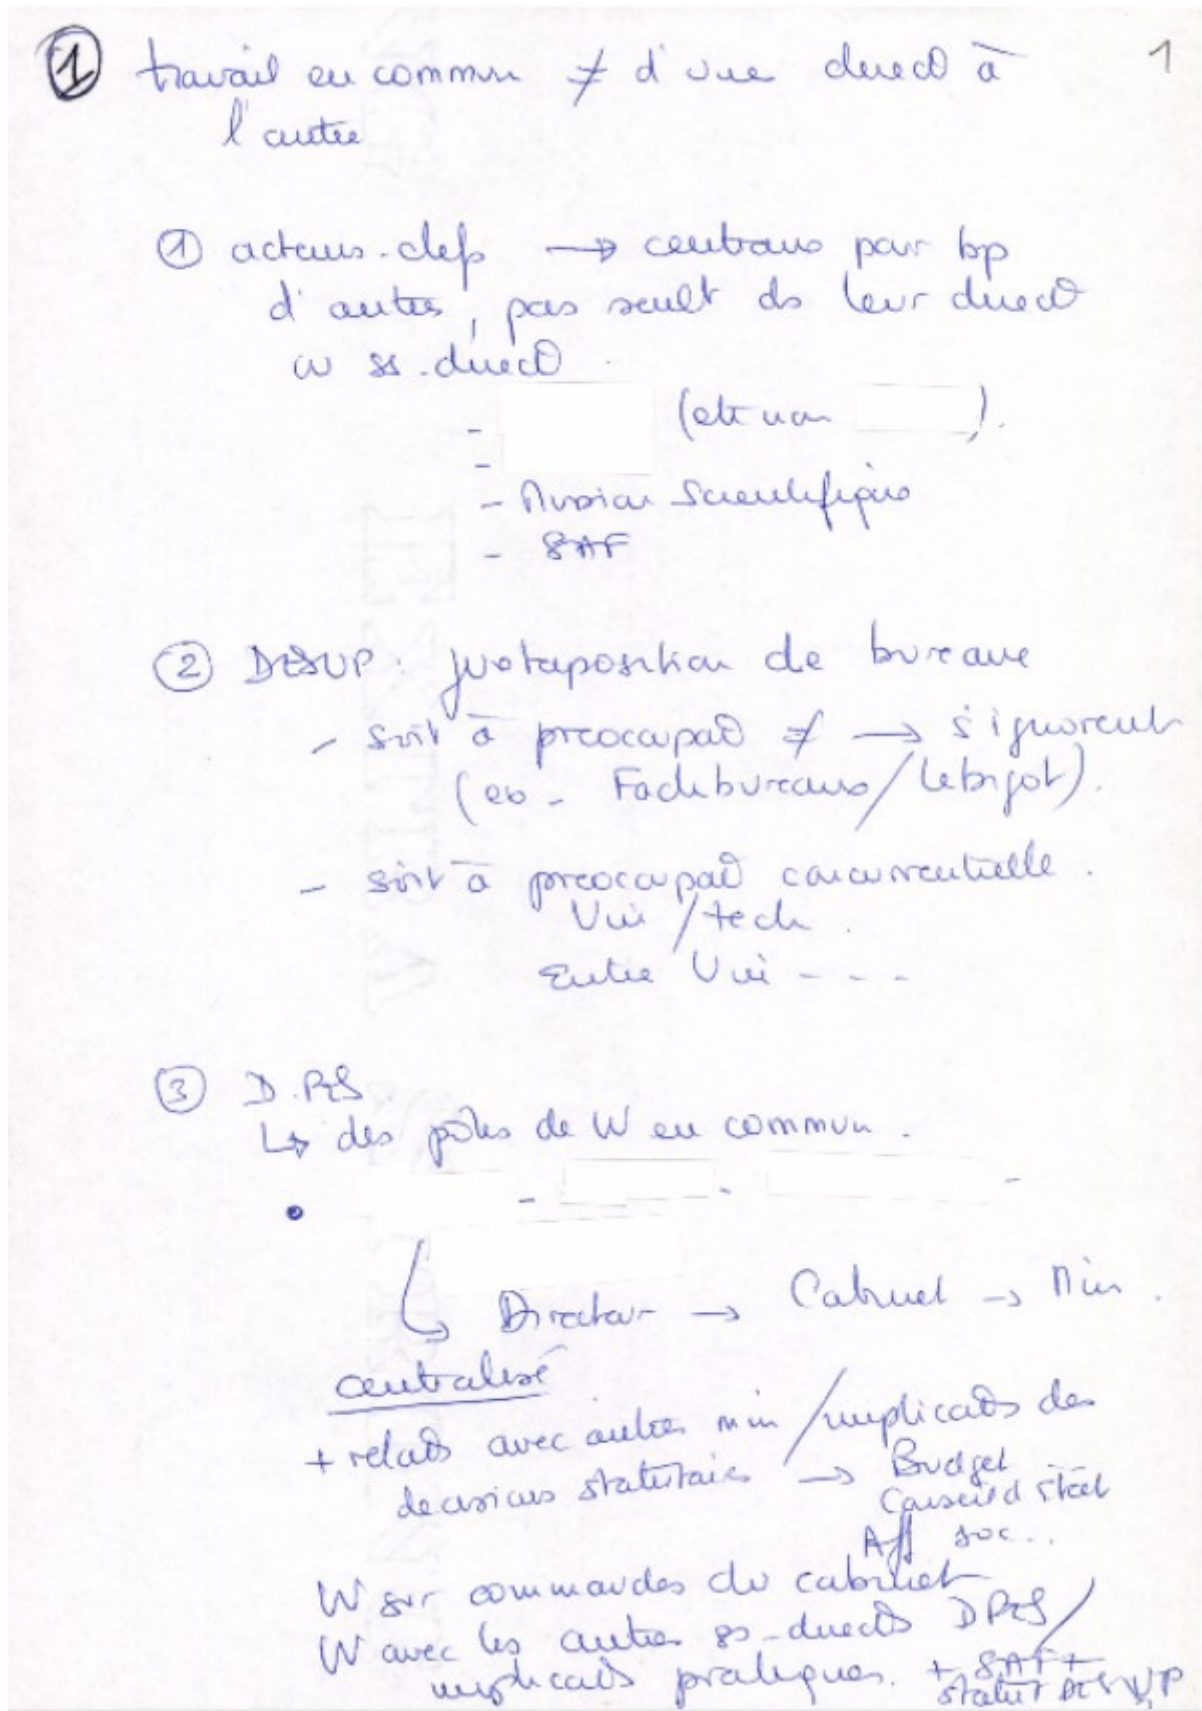 ① travail en commun ≠ d'une direcō à 1
l'autre
① acteurs-clefs → centraux pour bp
d'autres, pas seult ds leur direcō
ou ss-direcō.
- (et non ).
-
- Mission Scientifique
- SAF
② DESUP : juxtaposition de bureaux
- soit à préocupaō ≠ → s'ignorent
(ex - Fachbureaux / Lebigot).
- soit à préocupaō concurrentielle.
Uni / tech.
Entre Uni - - -
③ D.PES
↳ des pôles de W en commun.
• - - -
↳ Directeur → Cabinet → Min.
centralisé
+ relaōs avec autres min / implicaōs des
décisions statutaires → Budget
Conseil d'état
Aff soc..
W sur commandes du cabinet
W avec les autres ss-direcōs DPES /
implicaōs pratiques. + SAF +
statut DESUP